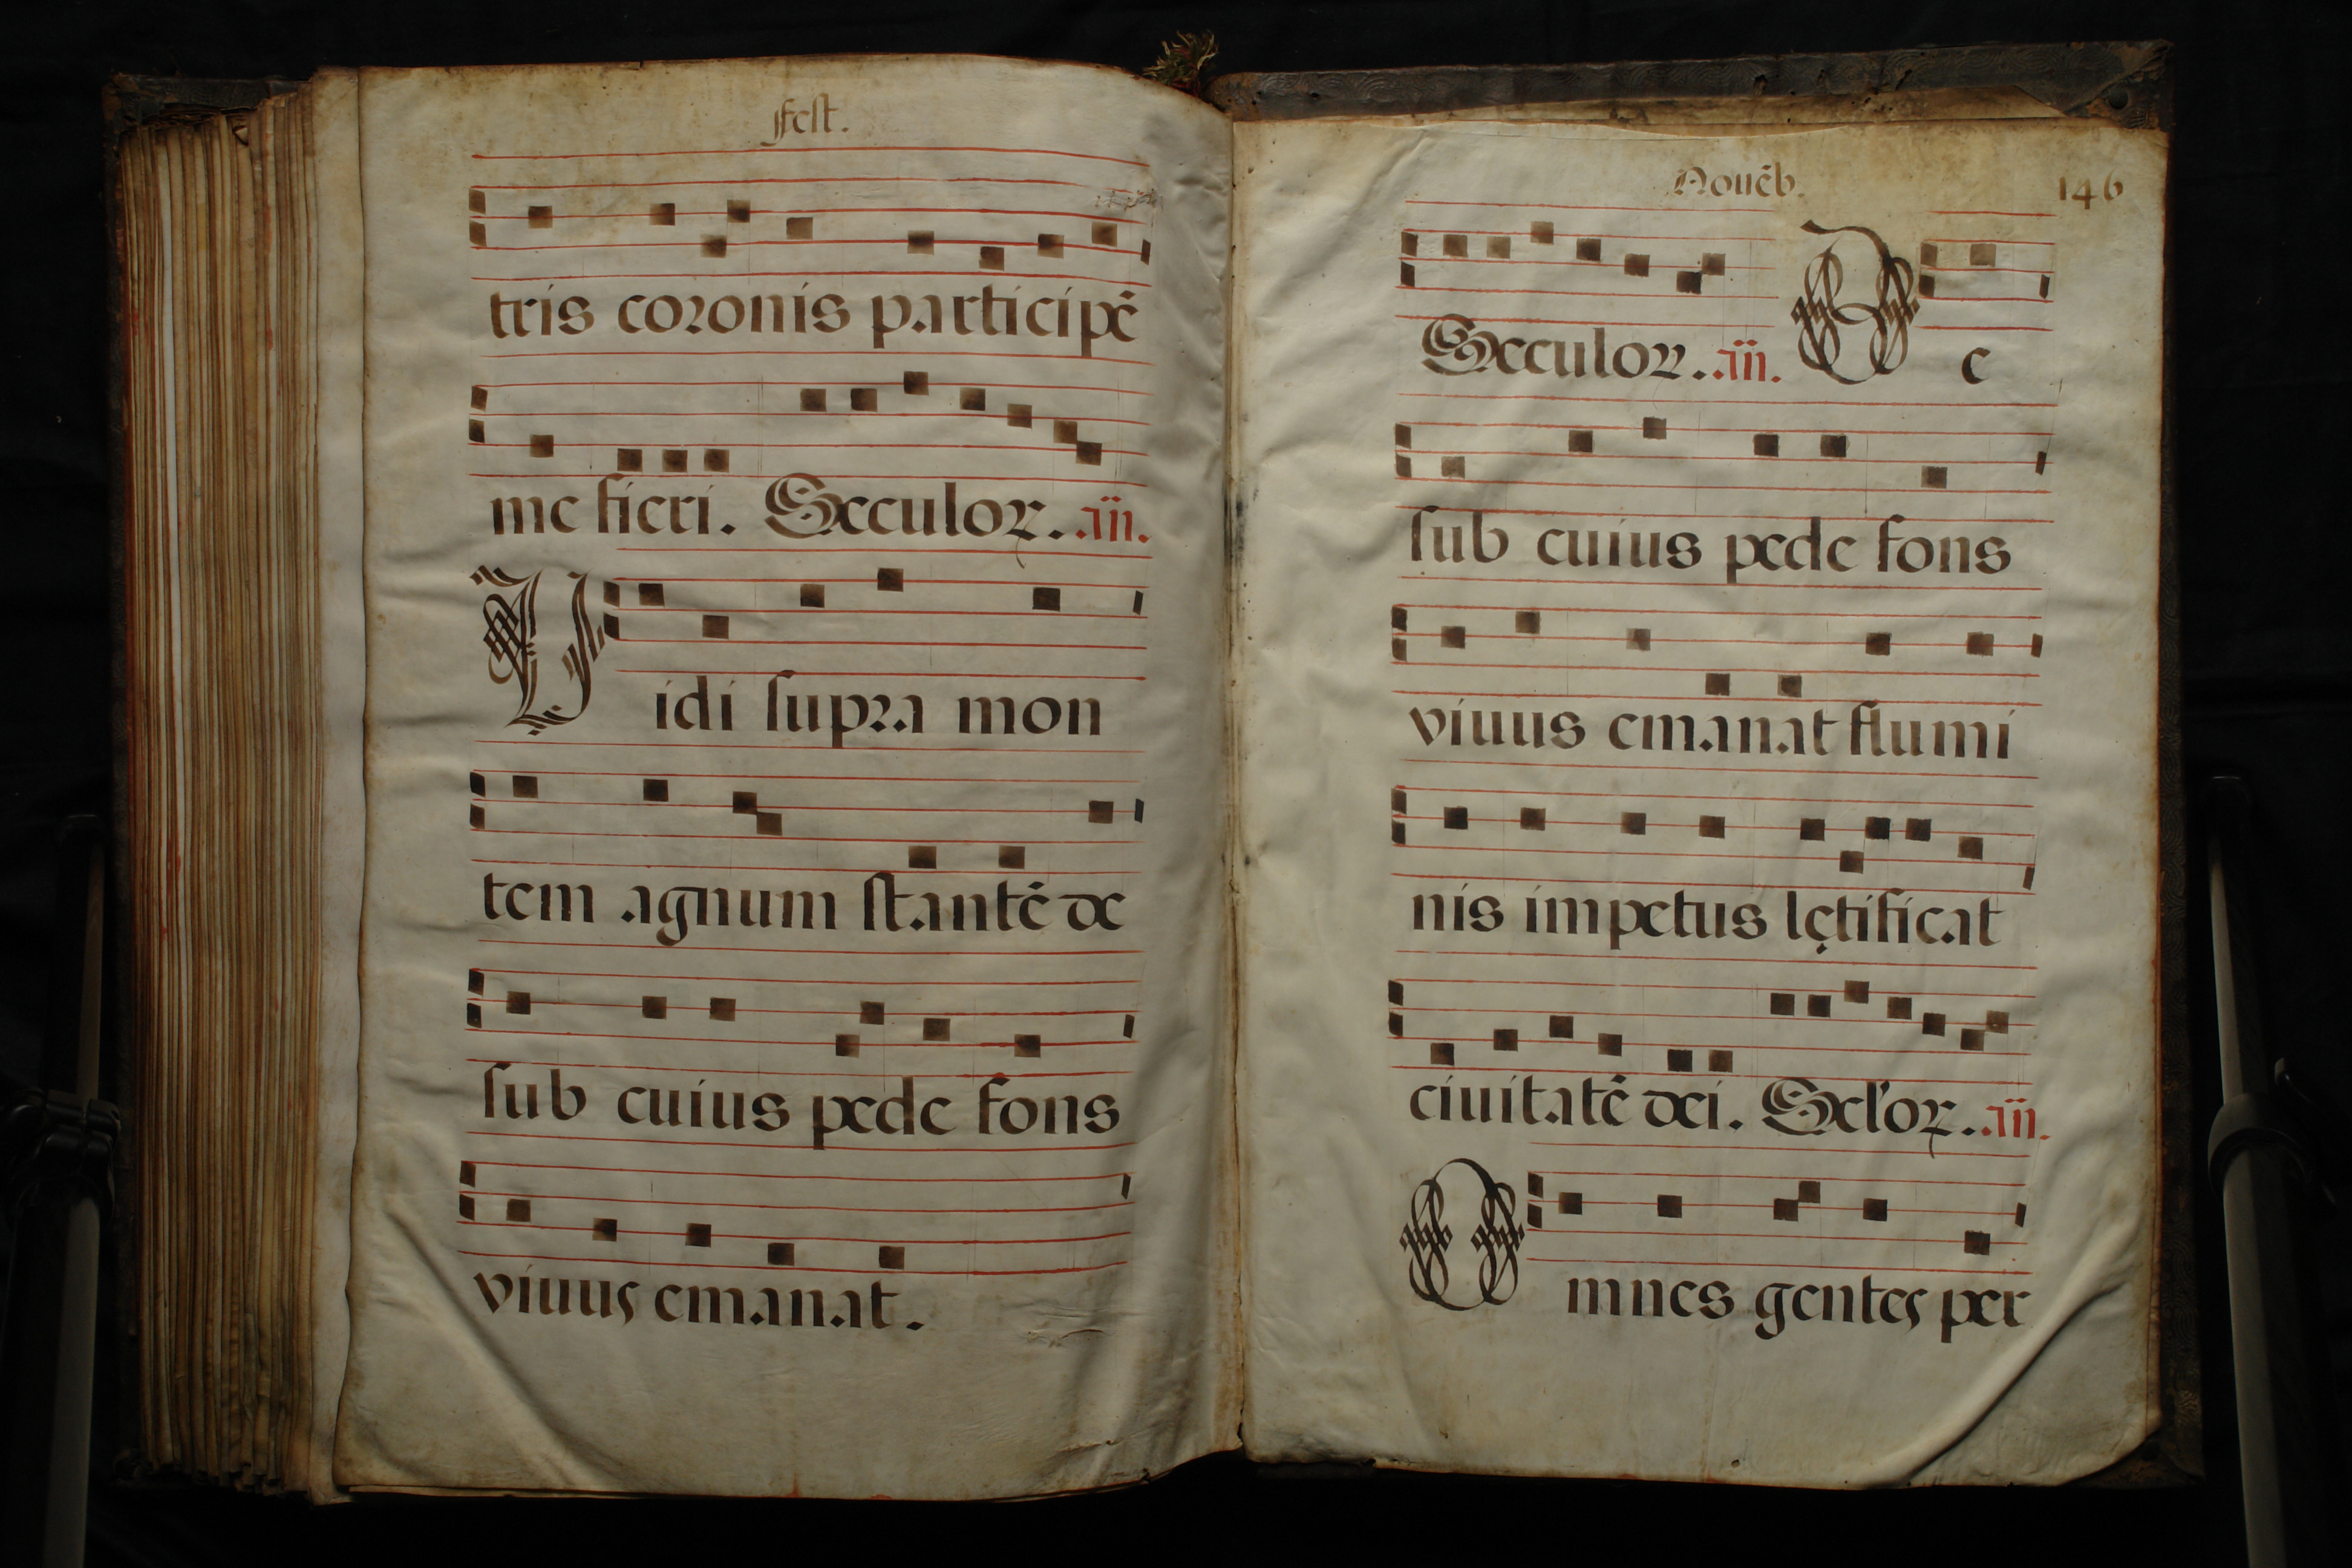 Fest.
tris coronis participē
me fieri. Seculoꝝ. añ.
Vidi supra mon
tem agnum stantē de
sub cuius pede fons
viuus emanat.
Nouēb. 146
Seculoꝝ. añ. De
sub cuius pede fons
viuus emanat flumi
nis impetus lętificat
ciuitatē dei. Secl'oꝝ. añ.
Omnes gentes per